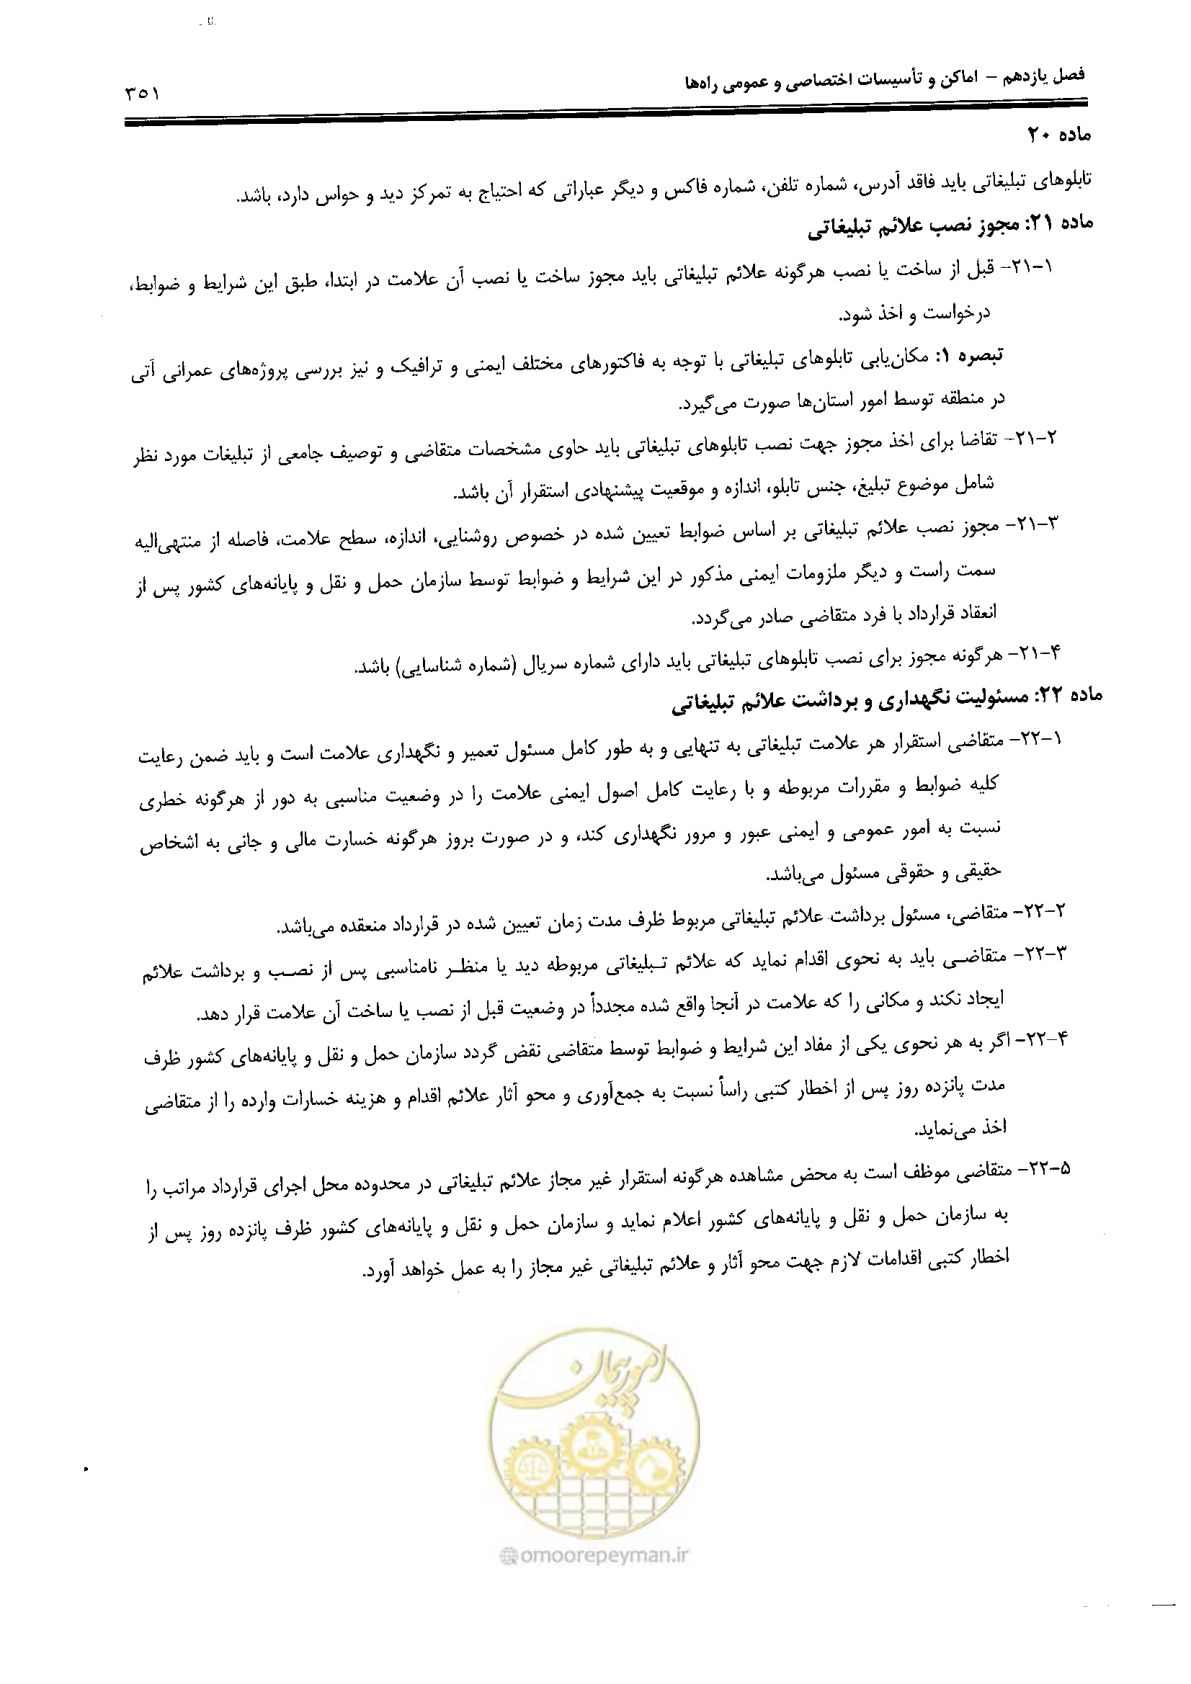 فصل یازدهم – اماکن و تأسیسات اختصاصی و عمومی راه‌ها
۳۵۱
ماده ۲۰
تابلوهای تبلیغاتی باید فاقد آدرس، شماره تلفن، شماره فاکس و دیگر عباراتی که احتیاج به تمرکز دید و حواس دارد، باشد.
ماده ۲۱: مجوز نصب علائم تبلیغاتی
۲۱-۱- قبل از ساخت یا نصب هرگونه علائم تبلیغاتی باید مجوز ساخت یا نصب آن علامت در ابتدا، طبق این شرایط و ضوابط،
درخواست و اخذ شود.
تبصره ۱: مکان‌یابی تابلوهای تبلیغاتی با توجه به فاکتورهای مختلف ایمنی و ترافیک و نیز بررسی پروژه‌های عمرانی آتی
در منطقه توسط امور استان‌ها صورت می‌گیرد.
۲۱-۲- تقاضا برای اخذ مجوز جهت نصب تابلوهای تبلیغاتی باید حاوی مشخصات متقاضی و توصیف جامعی از تبلیغات مورد نظر
شامل موضوع تبلیغ، جنس تابلو، اندازه و موقعیت پیشنهادی استقرار آن باشد.
۲۱-۳- مجوز نصب علائم تبلیغاتی بر اساس ضوابط تعیین شده در خصوص روشنایی، اندازه، سطح علامت، فاصله از منتهی‌الیه
سمت راست و دیگر ملزومات ایمنی مذکور در این شرایط و ضوابط توسط سازمان حمل و نقل و پایانه‌های کشور پس از
انعقاد قرارداد با فرد متقاضی صادر می‌گردد.
۲۱-۴- هرگونه مجوز برای نصب تابلوهای تبلیغاتی باید دارای شماره سریال (شماره شناسایی) باشد.
ماده ۲۲: مسئولیت نگهداری و برداشت علائم تبلیغاتی
۲۲-۱- متقاضی استقرار هر علامت تبلیغاتی به تنهایی و به طور کامل مسئول تعمیر و نگهداری علامت است و باید ضمن رعایت
کلیه ضوابط و مقررات مربوطه و با رعایت کامل اصول ایمنی علامت را در وضعیت مناسبی به دور از هرگونه خطری
نسبت به امور عمومی و ایمنی عبور و مرور نگهداری کند، و در صورت بروز هرگونه خسارت مالی و جانی به اشخاص
حقیقی و حقوقی مسئول می‌باشد.
۲۲-۲- متقاضی، مسئول برداشت علائم تبلیغاتی مربوط ظرف مدت زمان تعیین شده در قرارداد منعقده می‌باشد.
۲۲-۳- متقاضی باید به نحوی اقدام نماید که علائم تبلیغاتی مربوطه دید یا منظر نامناسبی پس از نصب و برداشت علائم
ایجاد نکند و مکانی را که علامت در آنجا واقع شده مجدداً در وضعیت قبل از نصب یا ساخت آن علامت قرار دهد.
۲۲-۴- اگر به هر نحوی یکی از مفاد این شرایط و ضوابط توسط متقاضی نقض گردد سازمان حمل و نقل و پایانه‌های کشور ظرف
مدت پانزده روز پس از اخطار کتبی راساً نسبت به جمع‌آوری و محو آثار علائم اقدام و هزینه خسارات وارده را از متقاضی
اخذ می‌نماید.
۲۲-۵- متقاضی موظف است به محض مشاهده هرگونه استقرار غیر مجاز علائم تبلیغاتی در محدوده محل اجرای قرارداد مراتب را
به سازمان حمل و نقل و پایانه‌های کشور اعلام نماید و سازمان حمل و نقل و پایانه‌های کشور ظرف پانزده روز پس از
اخطار کتبی اقدامات لازم جهت محو آثار و علائم تبلیغاتی غیر مجاز را به عمل خواهد آورد.
امور پیمان
omoorepeyman.ir